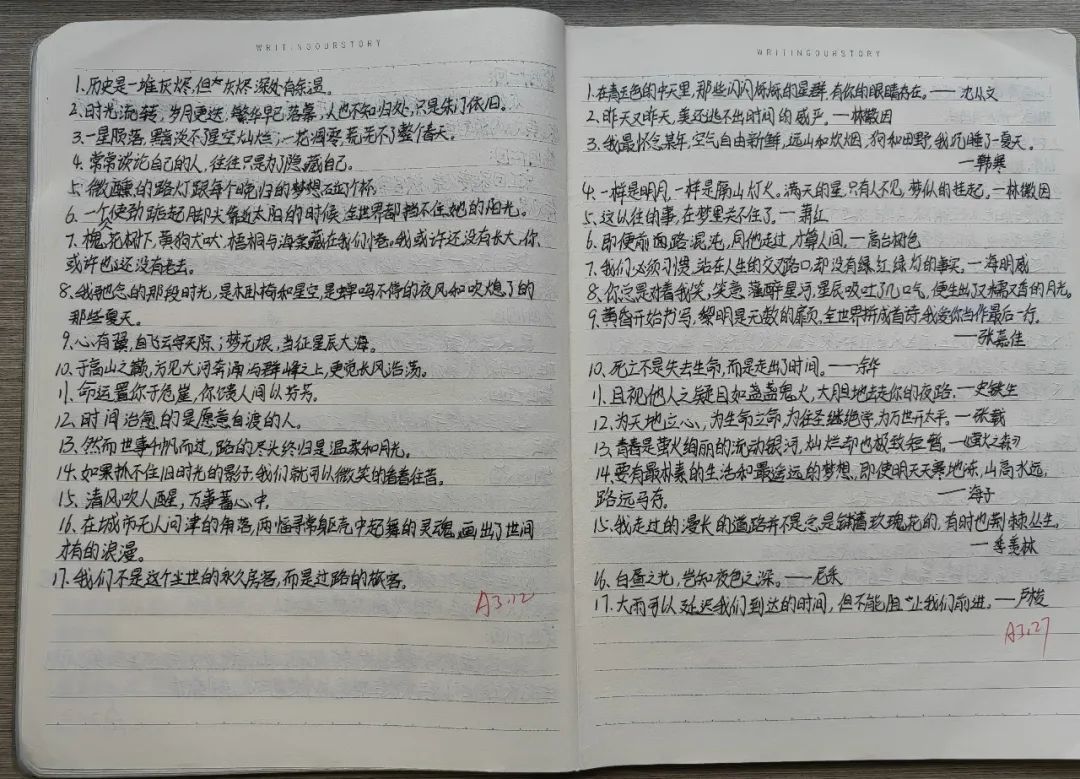 WRITINGOURSTORY
1.历史是一堆灰烬,但灰烬深处有余温。
2.时光流转,岁月更迭,繁华早已落幕,人也不知归处,只是朱门依旧。
3.一星陨落,黯淡不了星空灿烂;一花凋零,荒芜不了整个春天。
4.常常谈论自己的人,往往只是为了隐藏自己。
5.微醺的路灯跟每个晚归的梦想碰杯。
6.一个使劲踮起脚尖靠近太阳的时候,全世界都挡不住她的阳光。
7.槐花树下,黄狗犬吠,梧桐与海棠藏在我们小巷。我或许还没有长大,你
或许也还没有老去。
8.我驰念的那段时光,是木卧椅和星空,是蝉鸣不停的夜风和吹熄了的
那些夏天。
9.心有翼,自飞云宇天际;梦无垠,当征星辰大海。
10.于高山之巅,方见大河奔涌;与群峰之上,更觉长风浩荡。
11.命运置你于危崖,你馈人间以芬芳。
12.时间治愈的是愿意自渡的人。
13.然而世事千帆而过,路的尽头终归是温柔和月光。
14.如果抓不住旧时光的影子,我们就可以微笑的看着往昔。
15.清风吹人醒,万事蓄心中。
16.在城市无人问津的角落,两幅寻常躯壳中起舞的灵魂,画出了世间
亦有的浪漫。
17.我们不是这个尘世的永久房客,而是过路的旅客。
A3.12
WRITINGOURSTORY
1.在青玉色的中天里,那些闪闪烁烁的星群,有你的眼睛存在。——沈从文
2.昨天又昨天,美还逃不出时间的威严。—林徽因
3.我最怀念某年,空气自由新鲜,远山和炊烟,狗和田野,我沉睡了一夏天。
—韩寒
4.一样是明月,一样是隔山灯火。满天的星,只有人不见,梦似的挂起。—林徽因
5.这以往的事,在梦里关不住了。—萧红
6.即便前面路混沌,同他走过,才算人间。—高台树色
7.我们必须习惯,站在人生的交叉路口,却没有绿红绿灯的事实。—海明威
8.你总是对着我笑,笑意落醉星河,星辰吸吐了几口气,便生出了又糯又香的月光。
9.黄昏开始书写,黎明是无数的扉页,全世界拼成首诗,我爱你当作最后一行。
—张嘉佳
10.死亡不是失去生命,而是走出了时间。—余华
11.且视他人之疑目如盏盏鬼火,大胆地去走你的夜路。—史铁生
12.为天地立心,为生命立命,为往圣继绝学,为万世开太平。—张载
13.青春是萤火绚丽的流动银河,灿烂却也极致短暂。—《萤火之森》
14.要有最朴素的生活和最遥远的梦想,即使明天天寒地冻,山高水远,
路远马存。—海子
15.我走过的漫长的道路并不总是铺着玫瑰花的,有时也荆棘丛生。
—季羡林
16.白昼之光,岂知夜色之深。——尼采
17.大雨可以延迟我们到达的时间,但不能阻止我们前进。—卢梭
A3.27